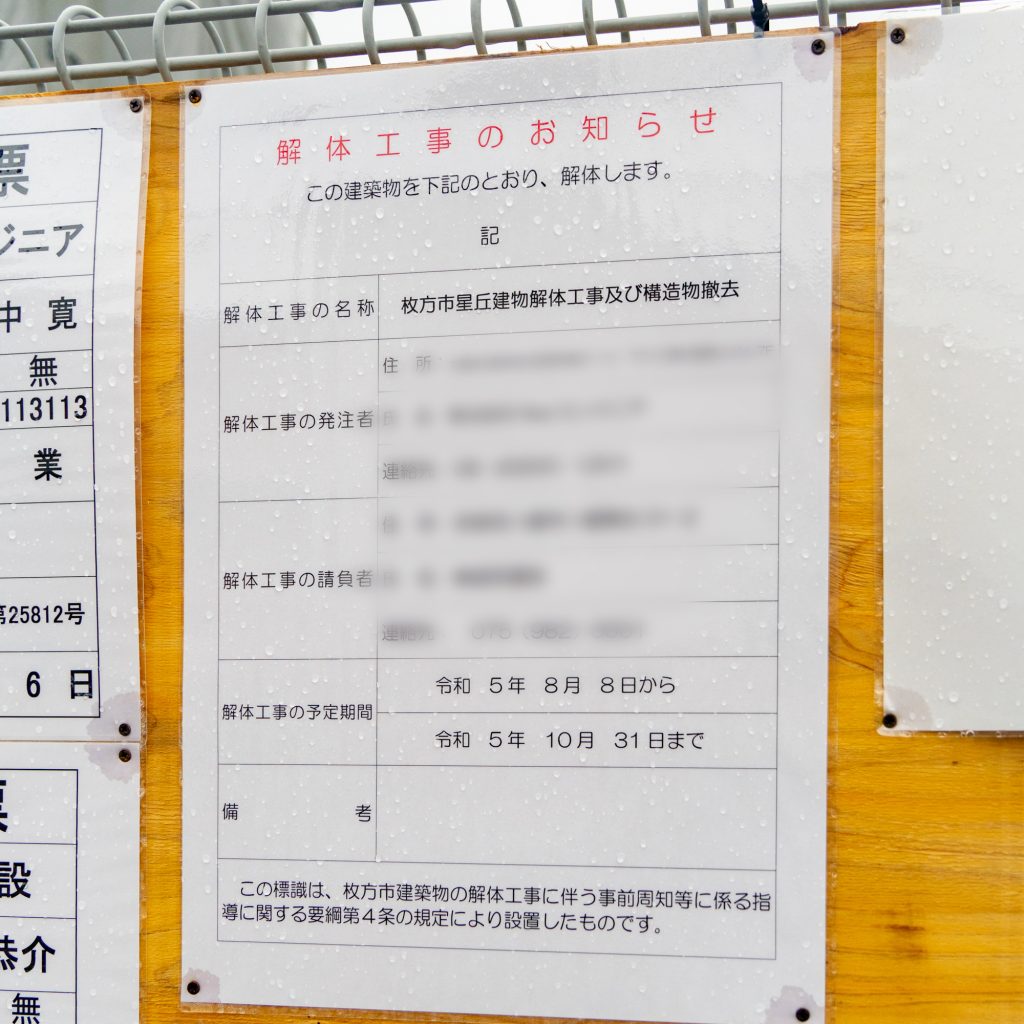 解体工事のお知らせ
この建築物を下記のとおり、解体します。
記
解体工事の名称 枚方市星丘建物解体工事及び構造物撤去
解体工事の発注者
住 所
連絡先
解体工事の請負者
連絡先
解体工事の予定期間
令和 5年 8月 8日から
令和 5年 10月 31日まで
備 考
この標識は、枚方市建築物の解体工事に伴う事前周知等に係る指
導に関する要綱第4条の規定により設置したものです。
票
ジニア
中 寛
無
113113
業
第25812号
6 日
票
設
恭介
無